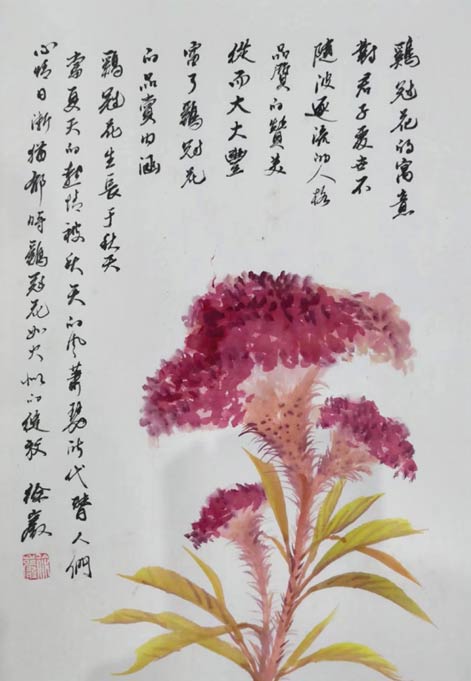 鷄冠花的寓意
對君子處世不
隨波逐流的人格
品質的贊美
從而大大豐
富了鷄冠花
的品賞内涵
鷄冠花生長于秋天
當夏天的熱情被秋天的風蕭瑟所代替人們
心情日漸猶郁時鷄冠花如火似的綻放
徐